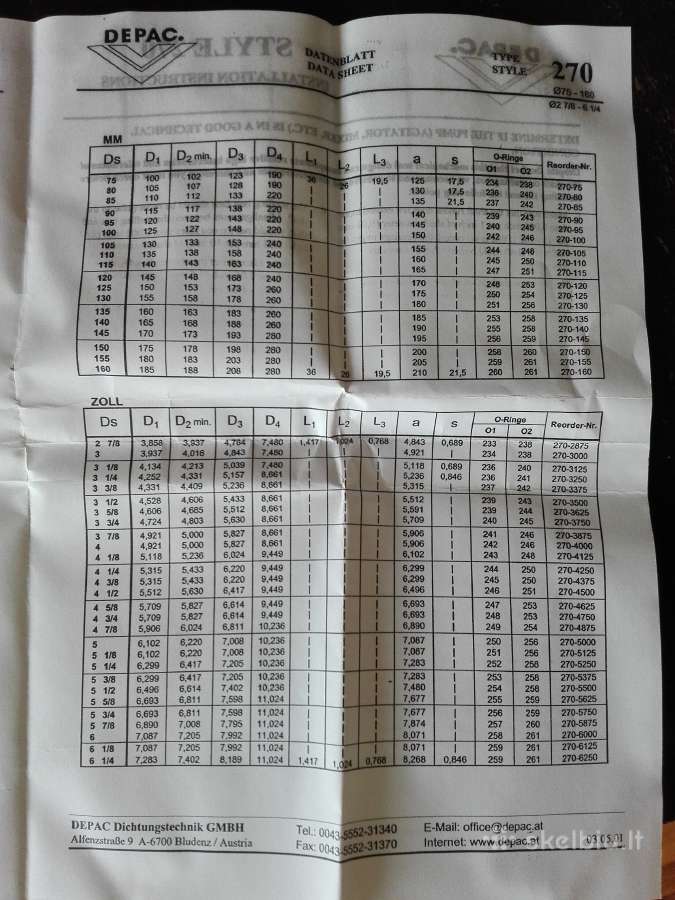 DEPAC.
DATENBLATT
DATA SHEET
TYPE
STYLE
270
Ø75 - 160
Ø2 7/8 - 6 1/4
MM
Ds D1 D2 min. D3 D4 L1 L2 L3 a s O-Ringe O1 O2 Reorder-Nr.
75 100 102 123 190 36 26 19,5 125 17,5 234 238 270-75
80 105 107 128 190 | | | 130 17,5 236 240 270-80
85 110 112 133 220 | | | 135 21,5 237 242 270-85
90 115 117 138 220 | | | 140 | 239 243 270-90
95 120 122 143 220 | | | 145 | 240 245 270-95
100 125 127 148 220 | | | 150 | 242 246 270-100
105 130 133 153 240 | | | 155 | 244 248 270-105
110 135 138 158 240 | | | 160 | 245 250 270-110
115 140 143 163 240 | | | 165 | 247 251 270-115
120 145 148 168 240 | | | 170 | 248 253 270-120
125 150 153 173 260 | | | 175 | 250 254 270-125
130 155 158 178 260 | | | 180 | 251 256 270-130
135 160 163 183 260 | | | 185 | 253 258 270-135
140 165 168 188 260 | | | 190 | 255 258 270-140
145 170 173 193 280 | | | 195 | 256 259 270-145
150 175 178 198 280 | | | 200 | 258 260 270-150
155 180 183 203 280 | | | 205 | 259 261 270-155
160 185 188 208 280 36 26 19,5 210 21,5 260 261 270-160
ZOLL
Ds D1 D2 min. D3 D4 L1 L2 L3 a s O-Ringe O1 O2 Reorder-Nr.
2 7/8 3,858 3,937 4,764 7,480 1,417 1,024 0,768 4,843 0,689 233 238 270-2875
3 3,937 4,016 4,843 7,480 | | | 4,921 | 234 238 270-3000
3 1/8 4,134 4,213 5,039 7,480 | | | 5,118 0,689 236 240 270-3125
3 1/4 4,252 4,331 5,157 8,661 | | | 5,236 0,846 236 241 270-3250
3 3/8 4,331 4,409 5,236 8,661 | | | 5,315 | 237 242 270-3375
3 1/2 4,528 4,606 5,433 8,661 | | | 5,512 | 239 243 270-3500
3 5/8 4,606 4,685 5,512 8,661 | | | 5,591 | 239 244 270-3625
3 3/4 4,724 4,803 5,630 8,661 | | | 5,709 | 240 245 270-3750
3 7/8 4,921 5,000 5,827 8,661 | | | 5,906 | 241 246 270-3875
4 4,921 5,000 5,827 8,661 | | | 5,906 | 242 246 270-4000
4 1/8 5,118 5,236 6,024 9,449 | | | 6,102 | 243 248 270-4125
4 1/4 5,315 5,433 6,220 9,449 | | | 6,299 | 244 250 270-4250
4 3/8 5,315 5,433 6,220 9,449 | | | 6,299 | 245 250 270-4375
4 1/2 5,512 5,630 6,417 9,449 | | | 6,496 | 246 251 270-4500
4 5/8 5,709 5,827 6,614 9,449 | | | 6,693 | 247 253 270-4625
4 3/4 5,709 5,827 6,614 9,449 | | | 6,693 | 248 253 270-4750
4 7/8 5,906 6,024 6,811 10,236 | | | 6,890 | 249 254 270-4875
5 6,102 6,220 7,008 10,236 | | | 7,087 | 250 256 270-5000
5 1/8 6,102 6,220 7,008 10,236 | | | 7,087 | 251 256 270-5125
5 1/4 6,299 6,417 7,205 10,236 | | | 7,283 | 252 258 270-5250
5 3/8 6,299 6,417 7,205 10,236 | | | 7,283 | 253 258 270-5375
5 1/2 6,496 6,614 7,402 10,236 | | | 7,480 | 254 258 270-5500
5 5/8 6,693 6,811 7,598 11,024 | | | 7,677 | 255 259 270-5625
5 3/4 6,693 6,811 7,598 11,024 | | | 7,677 | 256 259 270-5750
5 7/8 6,890 7,008 7,795 11,024 | | | 7,874 | 257 260 270-5875
6 7,087 7,205 7,992 11,024 | | | 8,071 | 258 261 270-6000
6 1/8 7,087 7,205 7,992 11,024 | | | 8,071 | 259 261 270-6125
6 1/4 7,283 7,402 8,189 11,024 1,417 1,024 0,768 8,268 0,846 259 261 270-6250
DEPAC Dichtungstechnik GMBH
Alfenzstraße 9 A-6700 Bludenz / Austria
Tel.: 0043-5552-31340
Fax: 0043-5552-31370
E-Mail: office@depac.at
Internet: www.depac.at
03.05.01
skelbiu.lt